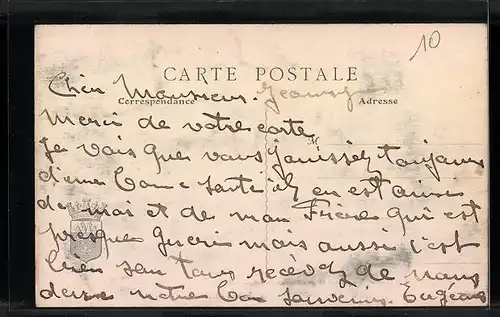 10
CARTE POSTALE
Cher Monsieur Georges
Correspondance
Adresse
M
Merci de votre carte
Je vois que vous jouissez toujours
d'une bonne santé il en est aussi
de moi et de mon Frère qui est
presque guéri mais aussi c'est
bien son tour recevez de nous
deux notre bon souvenir. Eugène